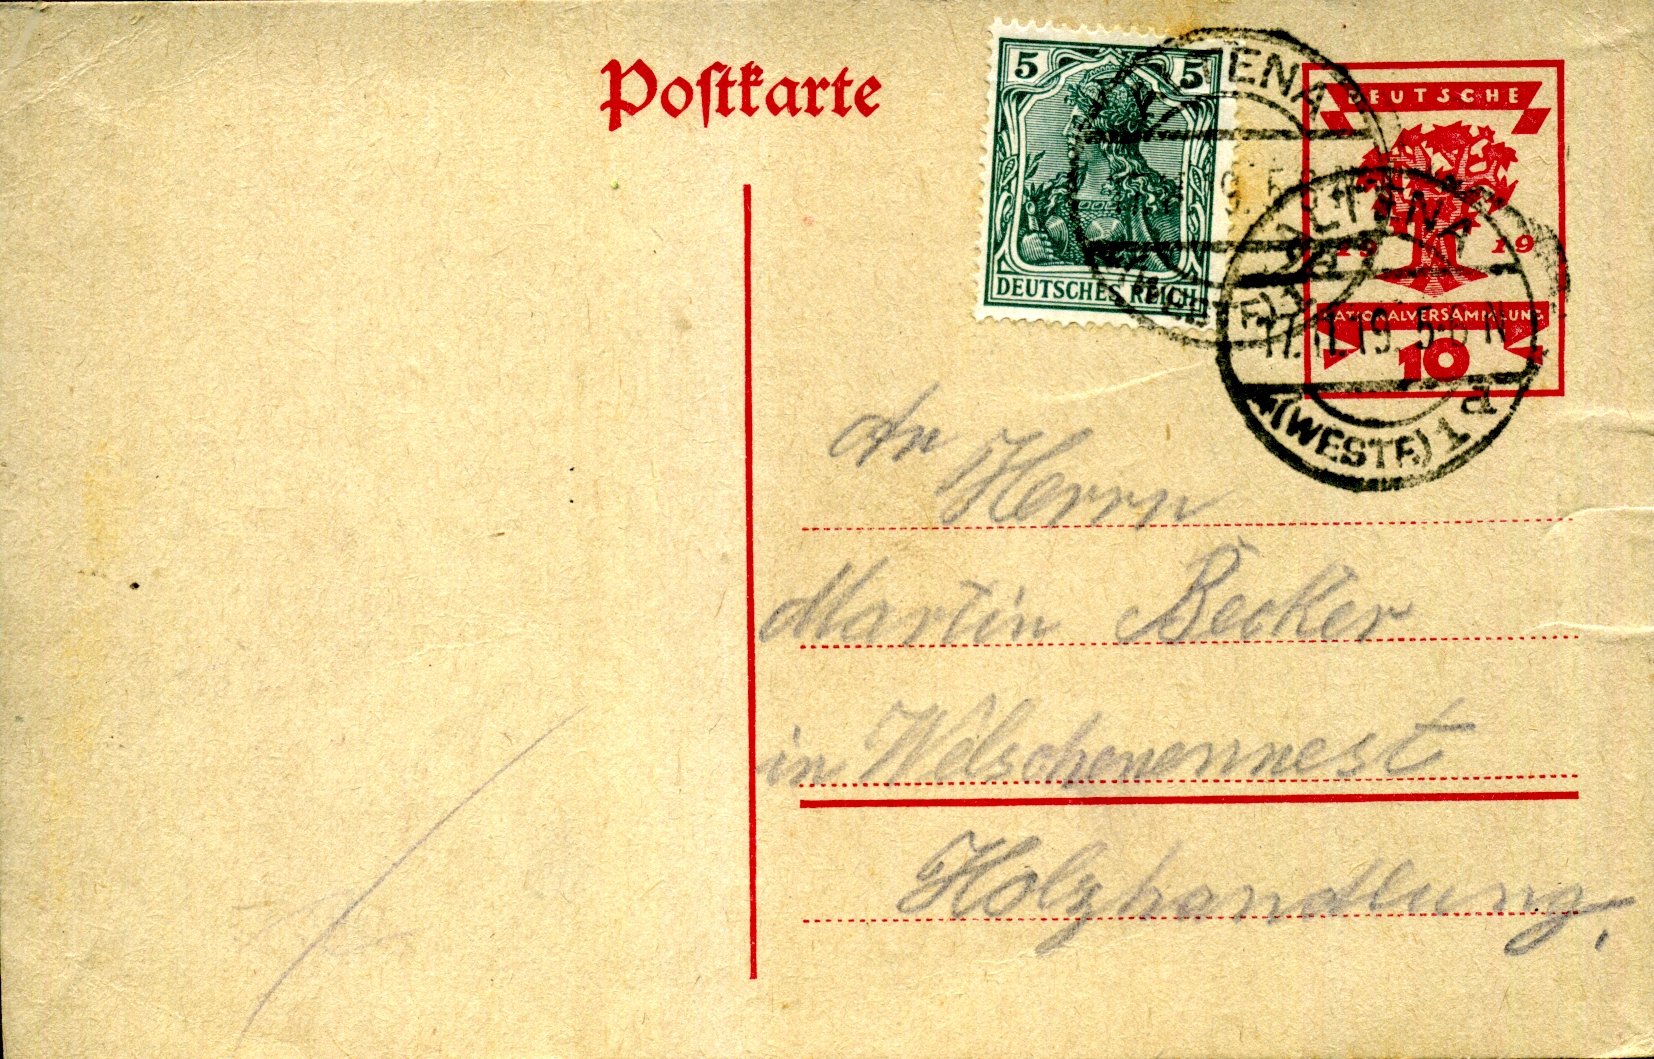 Postkarte
5 5
DEUTSCHES REICH
DEUTSCHE
19 19
NATIONALVERSAMMLUNG
10
ALTENA
5-6 N
(WESTF.) 1 d
An
Herrn
Martin Becker
in Welschenennest
Holzhandlung,